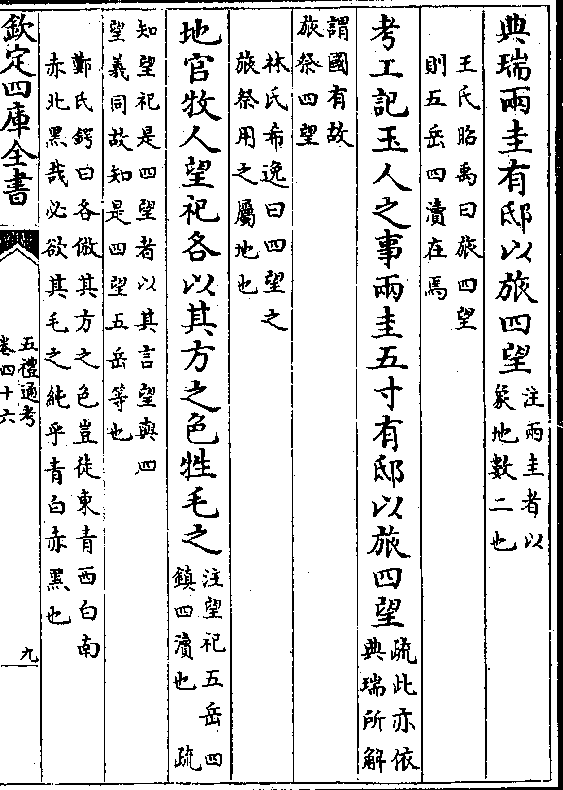 典瑞兩圭有邸以旅四望注兩圭者以
象地數二也
王氏昭禹曰旅四望
則五岳四瀆在焉
考工記玉人之事兩圭五寸有邸以旅四望疏此亦依
典瑞所解
謂國有故
旅祭四望
林氏希逸曰四望之
旅祭用之屬地也
地官牧人望祀各以其方之色牲毛之注望祀五岳四
鎮四瀆也 疏
知望祀是四望者以其言望與四
望義同故知是四望五岳等也
鄭氏鍔曰各倣其方之色豈徒東青西白南
赤北黑哉必欲其毛之純乎青白赤黑也
欽定四庫全書
五禮通考
卷四十六
九